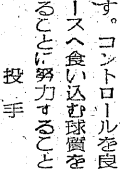 す。コントロールを良
ースへ食い込む球質を
ることに努力すること
投手